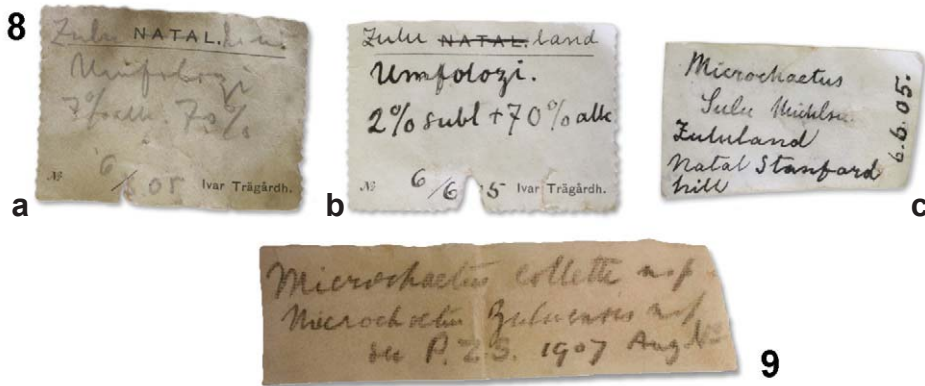 8
Zulu NATAL.
Umfolozi
70%
6/ 05 Ivar Trägårdh.
a
Zulu NATAL. land
Umfolozi.
2% subl + 70% alk
№ 6/6 5 Ivar Trägårdh.
b
Microchaetus
Sulu Michlsn.
Zululand
Natal Stanford
hill
6.6.05.
c
Microchaetus collette nsp
Microchaetus Zuluensis nsp
see P.Z.S. 1907 Aug No
9